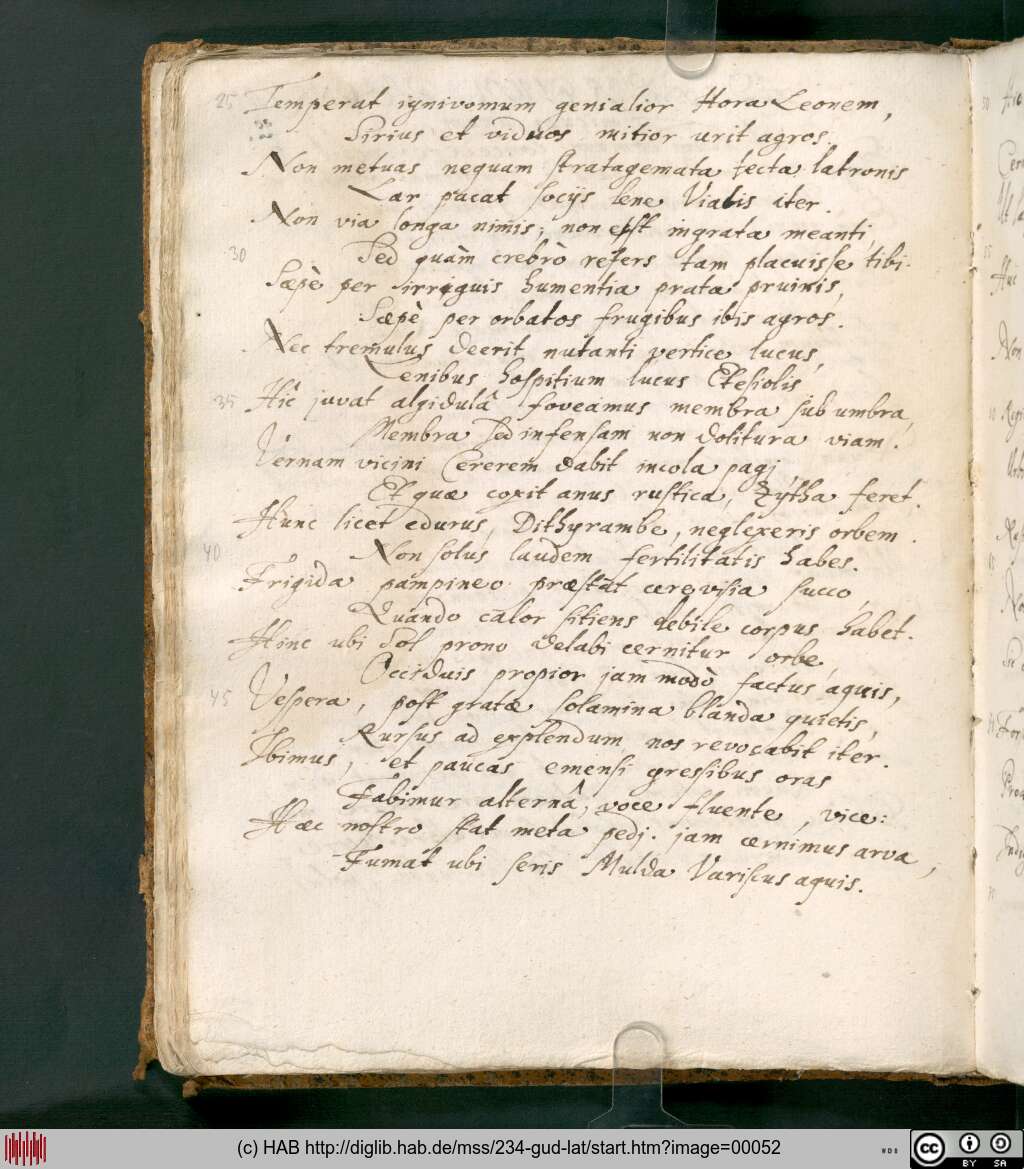 25 Temperat ignivomum genialior Hora Leonem,
Sirius et viduos mitior urit agros.
Non metuas nequam stratagemata tecta latronis
Lar pacat socijs lene Viatis iter.
Non via longa nimis; non est ingrata meanti,
30 Sed quàm crebrò refers tam placuisse tibi.
Sæpè per irriguis humentia prata pruinis,
Sæpè per orbatos frugibus ibis agros.
Nec tremulus deerit nutanti vertice lucus,
Lenibus hospitium lucus Etesiolis,
35 Hîc juvat algidulâ foveamus membra sub umbra,
Membra sed infensam non dolitura viam.
Vernam vicini Cererem dabit incola pagj
Et quæ coxit anus rustica, Zÿtha feret.
Hunc licet edurus, Dithyrambe, neglexeris orbem.
40 Non solus laudem fertilitatis habes.
Frigida pampineo præstat cerevisia succo,
Quando calor sitiens debile corpus habet.
Hinc ubi Sol prono delabi cernitur orbe,
Occiduis propior jam modò factus aquis,
45 Vespera, post gratæ solamina blanda quietis,
Rursus ad explendum nos revocabit iter.
Ibimus, et paucas emensi gressibus oras
Fabimur alternâ, voce fluente, vice:
Hæc nostro stat meta pedj. jam cernimus arva,
Fumat ubi seris Mulda Variscus aquis.
(c) HAB http://diglib.hab.de/mss/234-gud-lat/start.htm?image=00052
cc BY SA